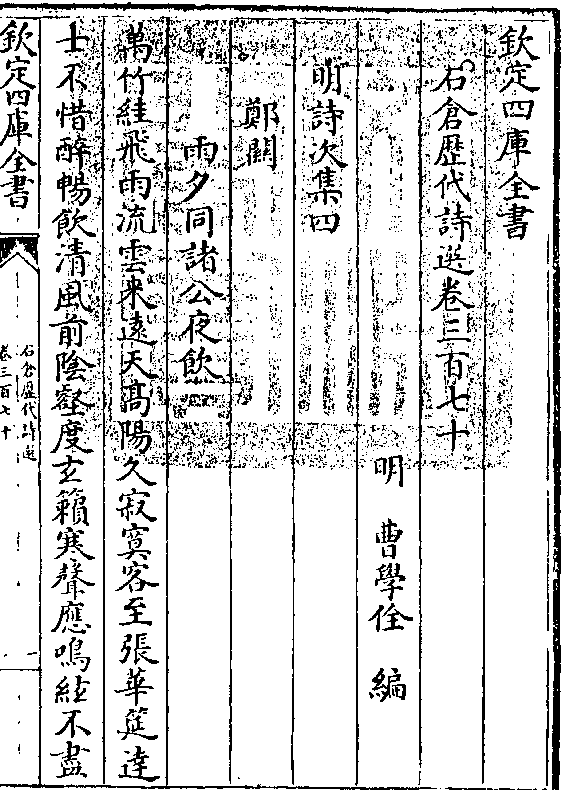 欽定四庫全書
石倉歴代詩選卷三百七十
明　曹學佺　編
明詩次集四
鄭關
雨夕同諸公夜飲
萬竹絓飛雨流雲来遠天髙陽久寂寞客至張華筵達
士不惜醉暢飲清風前陰壑度玄籟寒聲應鳴絃不盡
欽定四庫全書
石倉歴代詩選
卷三百七十
一